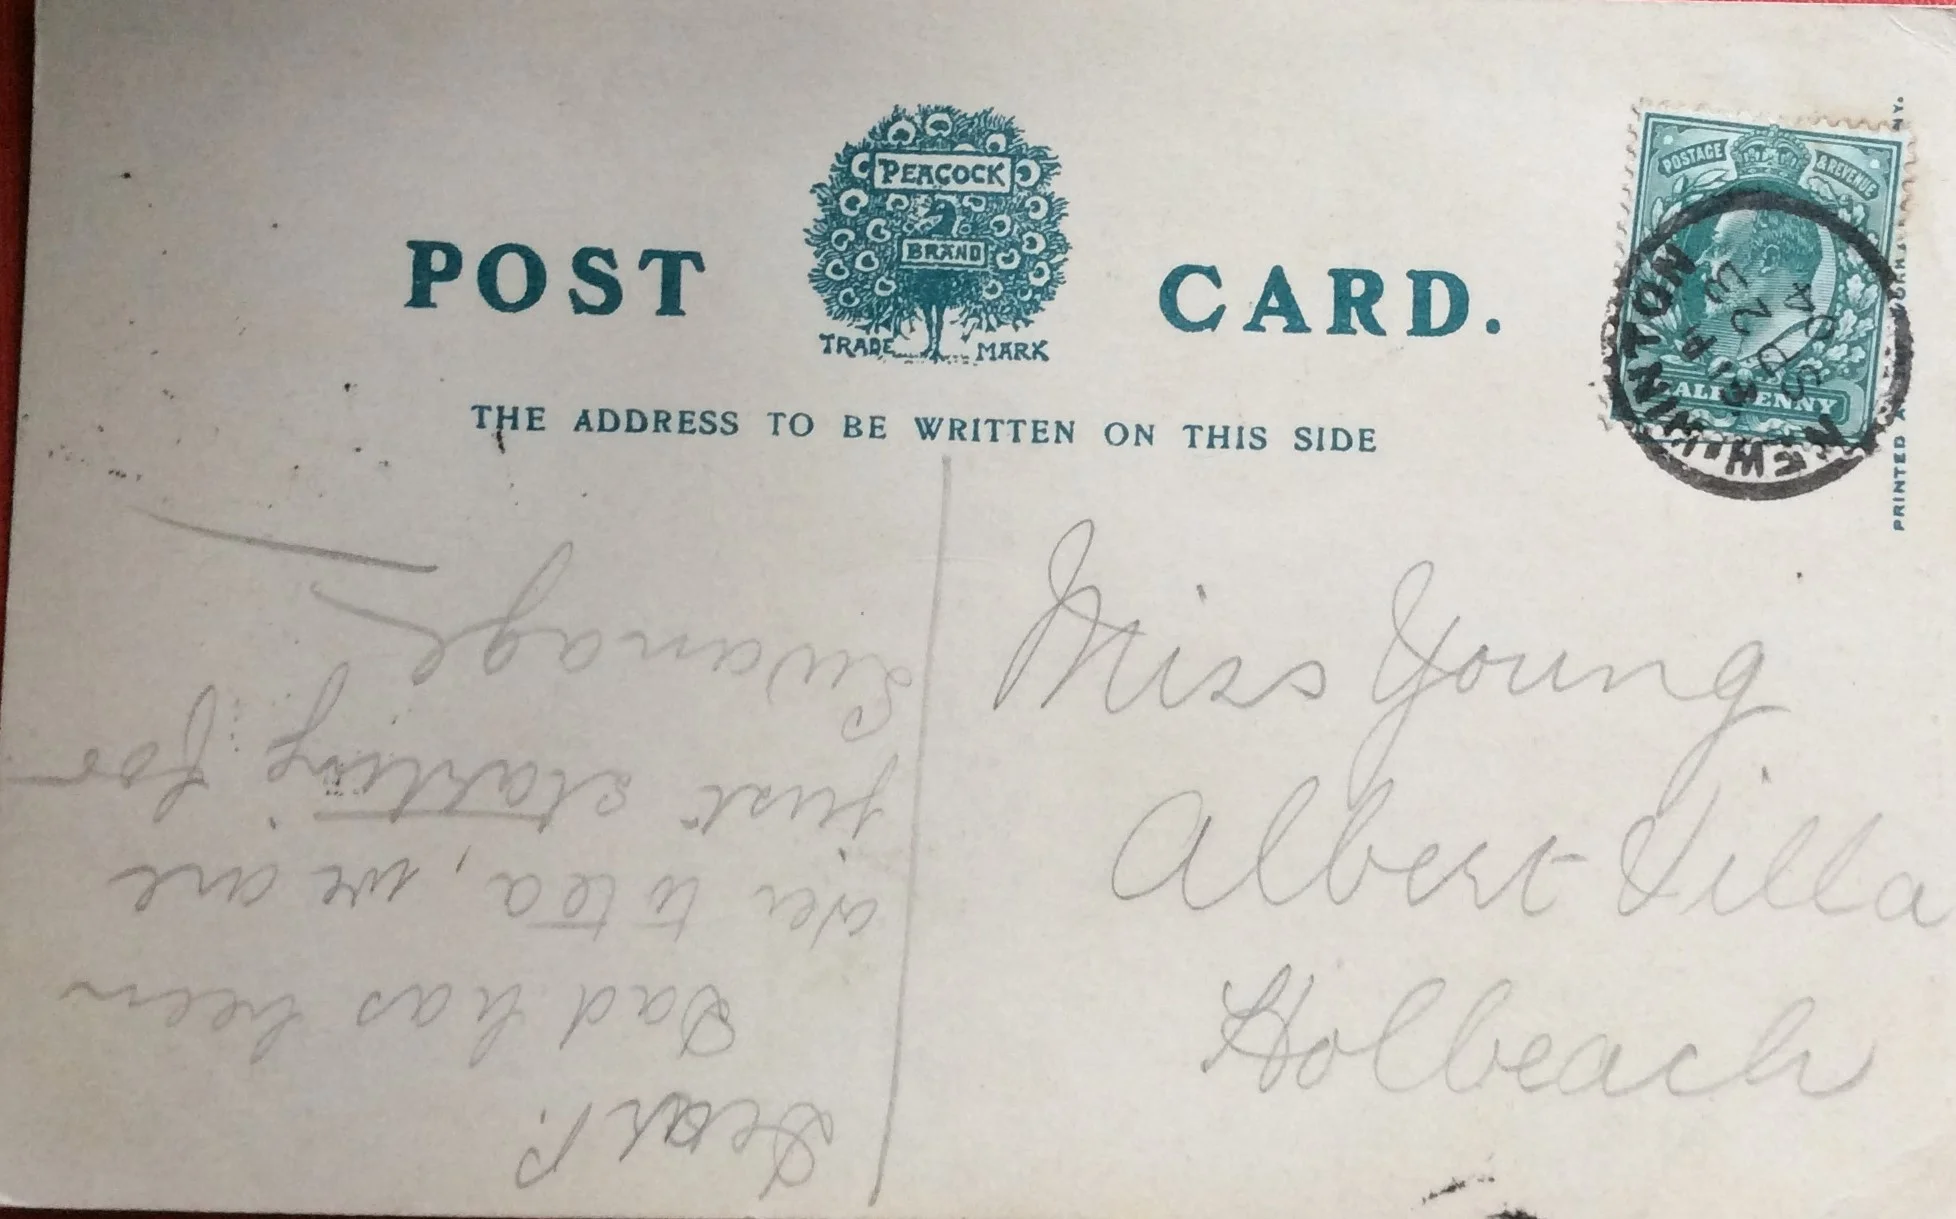 PEACOCK
BRAND
POST CARD.
TRADE MARK
THE ADDRESS TO BE WRITTEN ON THIS SIDE
POSTAGE & REVENUE
HALFPENNY
NEW HINNTON
SP 23
04
PRINTED
NY.
Miss Young
Albert Villa
Holbeach
Dear P.
Dad has been
over to tea, we are
just starting for
Swanage